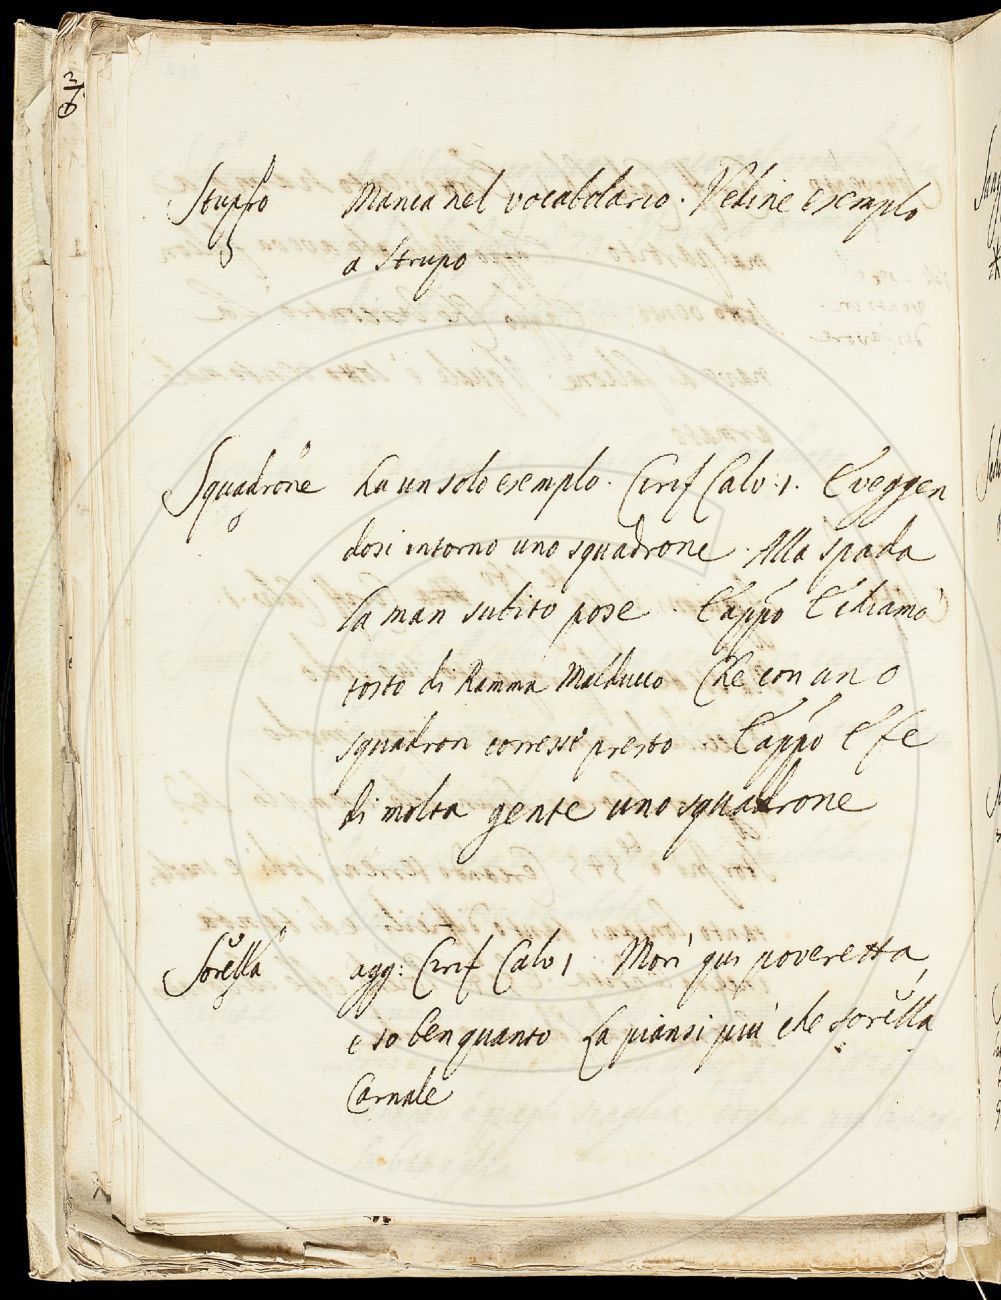 Stupro Manca nel vocabolario. Vedine esempio
a strupo
Squadrone ha un solo esemplo. Cirif Calv: 1. E veggen
dosi intorno uno squadrone. Alla spada
la man subito pose. E app̃o E chiamò
tosto di Ramma Malducco Che con uno
squadron corresse presto. E app̃o E fe
di molta gente uno squadrone
Sorella agg: Cirif Calv 1 Morì qui poveretta,
e so ben quanto La piansi più che sorella
Carnale